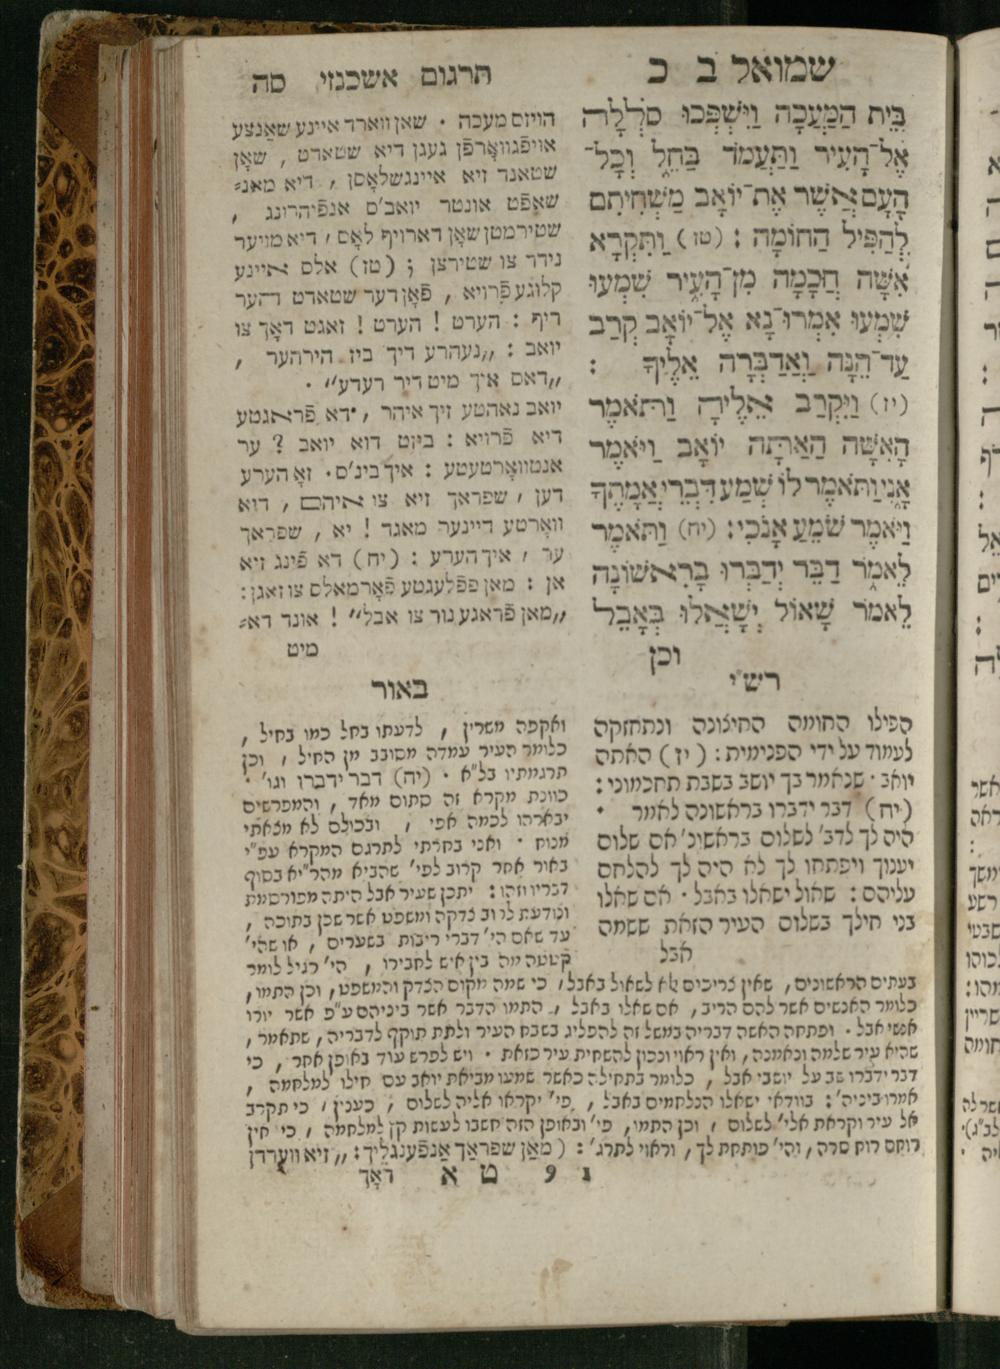 שמואל ב כ
תרגום אשכנזי סה
בֵּית הַמַּעֲכָה וַיִּשְׁפְּכוּ סֹלְלָה
אֶל־הָעִיר וַתַּעֲמֹד בַּחֵל וְכָל־
הָעָם אֲשֶׁר אֶת־יוֹאָב מַשְׁחִיתִם
לְהַפִּיל הַחוֹמָה : (טז) וַתִּקְרָא
אִשָּׁה חֲכָמָה מִן־הָעִיר שִׁמְעוּ
שִׁמְעוּ אִמְרוּ־נָא אֶל־יוֹאָב קְרַב
עַד־הֵנָּה וַאֲדַבְּרָה אֵלֶיךָ :
(יז) וַיִּקְרַב אֵלֶיהָ וַתֹּאמֶר
הָאִשָּׁה הַאַתָּה יוֹאָב וַיֹּאמֶר
אָנִי וַתֹּאמֶר לוֹ שְׁמַע דִּבְרֵי אֲמָתֶךָ
וַיֹּאמֶר שֹׁמֵעַ אָנֹכִי : (יח) וַתֹּאמֶר
לֵאמֹר דַּבֵּר יְדַבְּרוּ בָרִאשׁוֹנָה
לֵאמֹר שָׁאוֹל יְשָׁאֲלוּ בְּאָבֵל
וכן
הויזם מעכה . שאן ווארד איינע שאַנצע
אויפֿגוואָרפֿן געגן דיא שטאדט , שאָן
שטאנד זיא איינגשלאָסן , דיא מאנ=
שאַפֿט אונטר יואב'ס אנפֿיהרונג ,
שטירמטן שאָן דארויף לאָס , דיא מויער
נידר צו שטירצן ; (טז) אלס איינע
קלוגע פֿרויא , פֿאָן דער שטאדט הער
ריף : הערט ! הערט ! זאגט דאָך צו
יואב : ,,נעהרע דיך ביז הירהער ,
,,דאס איך מיט דיר רעדע'' .
יואב נאהטע זיך איהר , דא פֿראגטע
דיא פֿרויא : ביזט דוא יואב ? ער
אנטוואָרטעטע : איך בינ'ס . זאָ הערע
דען , שפראך זיא צו איהם , דיא
וואָרטע דיינער מאגד ! יא , שפראך
ער , איך הערע : (יח) דא פֿינג זיא
אן : מאן פפֿלעגטע פֿאָרמאלס צו זאגן :
,,מאן פֿראגע נור צו אבל'' ! אונד דא=
מיט
רש"י
הפילו החומה החיצונה ונתחזקה
לעמוד על ידי הפנימית : (יז) האתה
יואב . שנאמר בך יושב בשבת תחכמוני :
(יח) דבר ידברו בראשונה לאמר .
היה לך לדב' לשלום בראשונ' אם שלום
יענוך ויפתחו לך לא היה לך להלחם
עליהם : שאול ישאלו באבל . אם שאלו
בני חילך בשלום העיר הזאת ששמה
אבל
באור
ואקפה משרין , לדעתו בחל כמו בחיל ,
כלומר העיר עמדה מסובב מן החיל , וכן
תרגמתיו בל"א . (יח) דבר ידברו וגו' .
כוונת מקרא זה סתום מאד , והמפרשים
יבארהו לכמה אפי , ובכולם לא מצאתי
מנוח . ואני בחרתי לתרגם המקרא עפ"י
באור אחר קרוב לפי' שהביא מהר"יא בסוף
דבריו וזהו : יתכן שעיר אבל היתה מפורסמת
ונודעת לרוב צדקה ומשפט אשר שכן בתוכה ,
עד שאם הי' דברי ריבות בשערים , או שהי'
קטטה מה בין איש לחבירו , הי' רגיל לומר
בעתים הראשונים , שאין צריכים לא לשאול באבל , כי שמה מקום הצדק והמשפט , וכן התמו ,
כלומר האנשים אשר להם הריב , אם שאלו באבל , התמו הדבר אשר ביניהם ע"פ אשר יורו
אנשי אבל . ופתחה האשה דבריה במשל זה להפליג בשבח העיר ולתת תוקף לדבריה , שתאמר ,
שהיא עיר שלמה ונאמנה , ואין ראוי ונכון להשחית עיר כזאת . ויש לפרש עוד באופן אחר , כי
דבר ידברו שב על יושבי אבל , כלומר בתחילה כאשר שמעו מביאת יואב עם חילו למלחמה ,
אמרו ביניה' : בוודאי ישאלו הנלחמים באבל , פי' יקראו אליה לשלום , כענין , כי תקרב
אל עיר וקראת אלי' לשלום , וכן התמו , פי' ובאופן הזה חשבו לעשות קץ למלחמה , כי אין
רוחם רוח סרה , והי' פותחת לך , וראוי לתרג' : (מאַן שפראַך אַנפֿענגליך : ,, זיא ווערדן
נ 9 ט א
דאָך